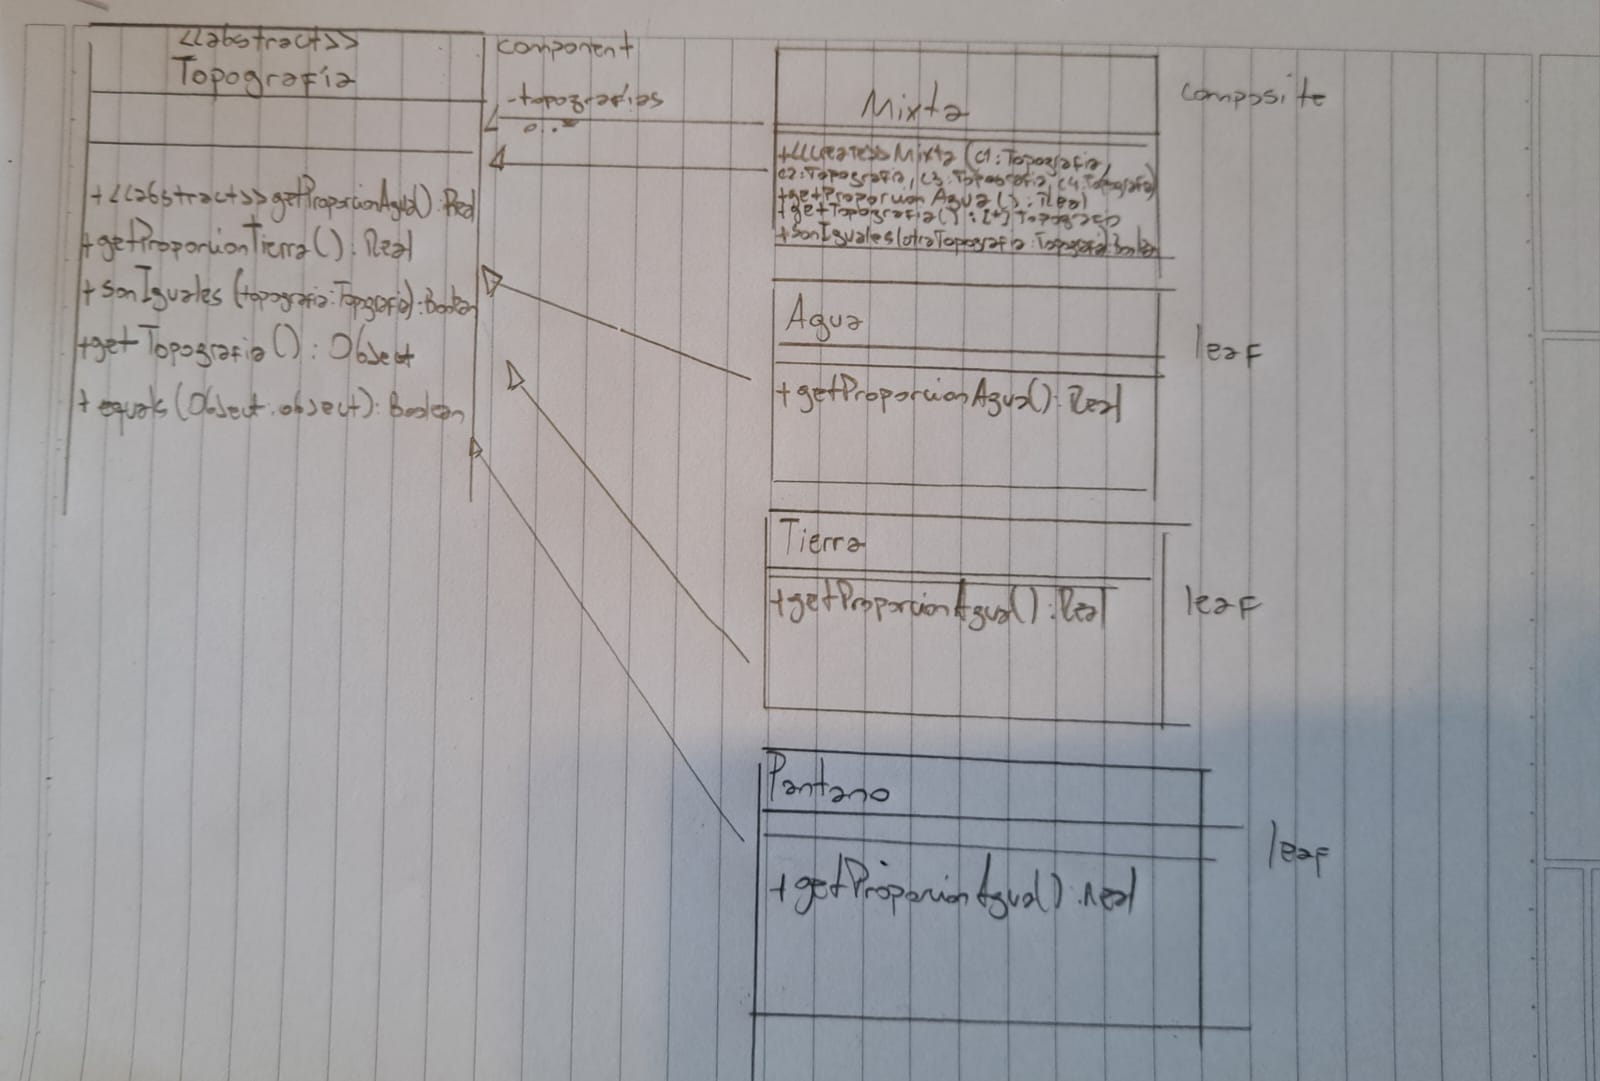 <<abstract>>
Topografía
+<<abstract>>getProporcionAgua():Real
+getProporcionTierra():Real
+sonIguales(topografia:Topografia):Boolean
+getTopografia():Object
+equals(Object:object):Boolean
component
-topografias
0..*
Mixta
+<<create>>Mixta(c1:Topografia,
c2:Topografia, c3:Topografia, c4:Topografia)
+getProporcionAgua():Real
+getTopografia():[*]
+sonIguales(otraTopografia:Topografia):Boolean
composite
Agua
+getProporcionAgua():Real
leaf
Tierra
+getProporcionAgua():Real
leaf
Pantano
+getProporcionAgua():Real
leaf